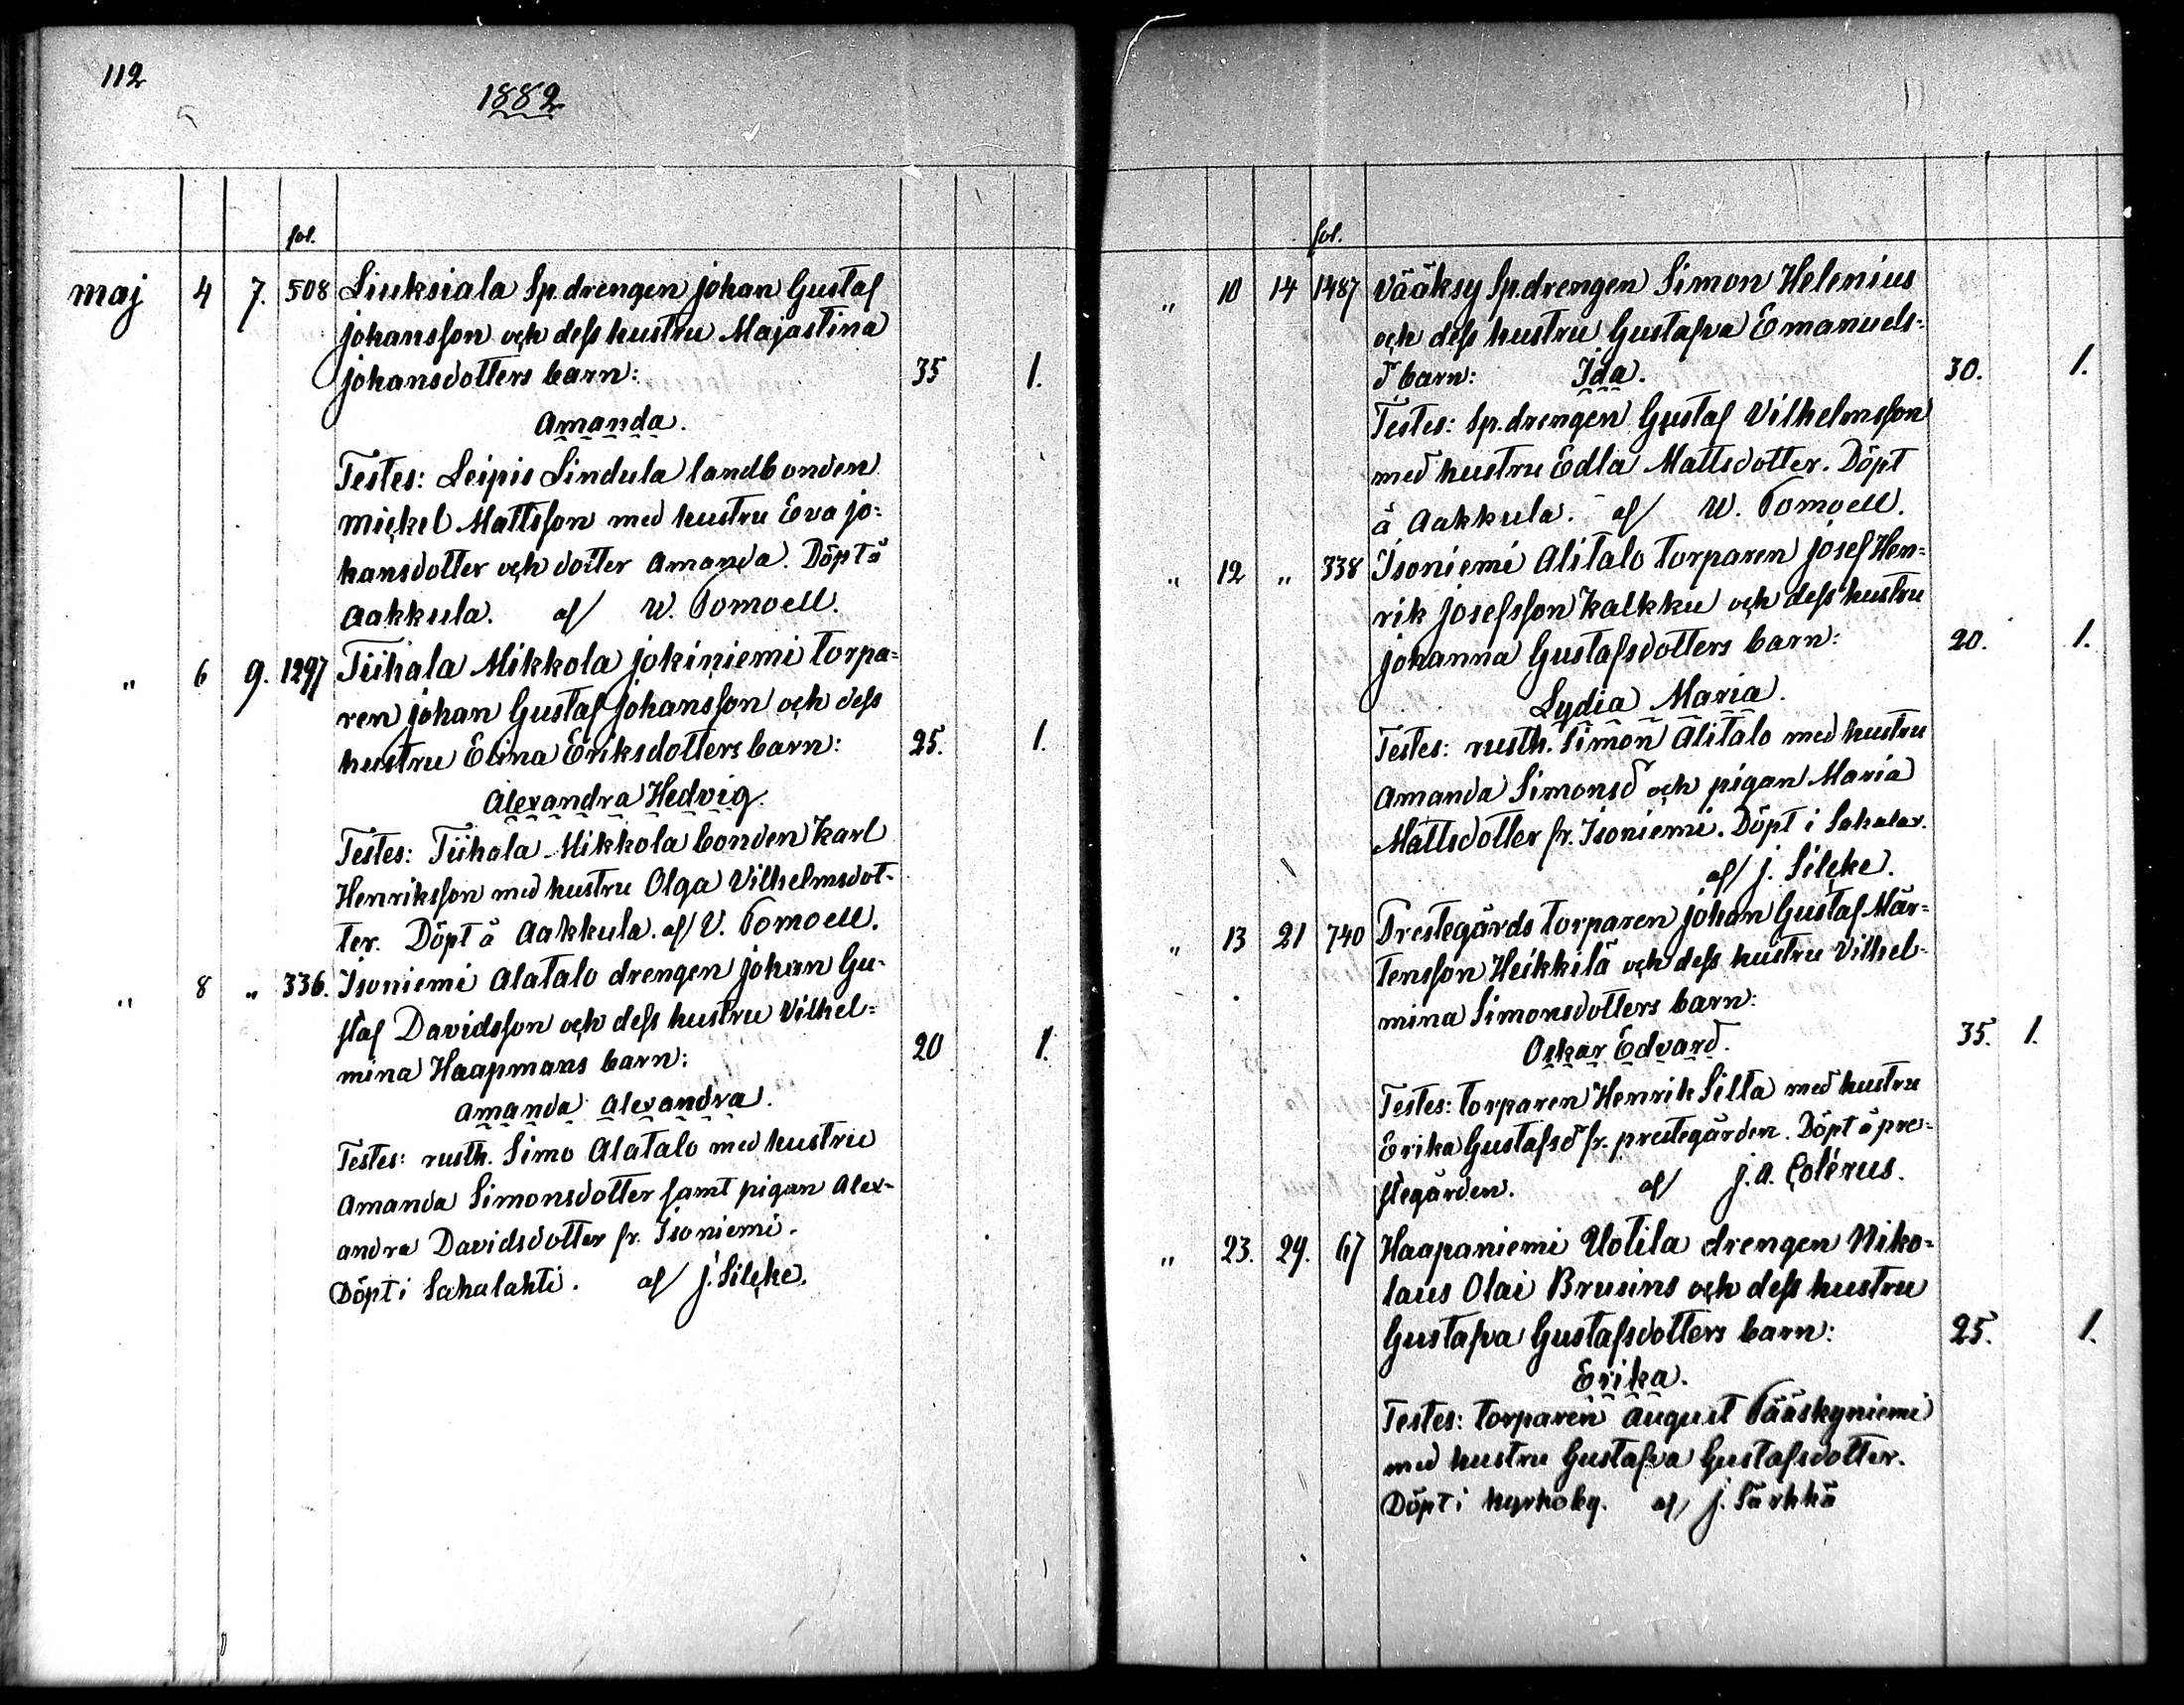 112
1882
fol.
maj 4 7. 508 Liuksiala Sp.drengen Johan Gustaf
Johansson och dess hustru Majastina
Johansdotters barn: 35 1.
Amanda.
Testes: Leipis Lindula landbonden
Mickel Mattsson med hustru Eva Jo=
hansdotter och dotter Amanda. Döpt å
Aakkula. af W. Pomoell.
" 6 9. 1297 Tiihala Mikkola Jokiniemi torpa=
ren Johan Gustaf Johansson och dess
hustru Elina Eriksdotters barn: 25. 1.
Alexandra Hedvig.
Testes: Tiihala Mikkola bonden Karl
Henriksson med hustru Olga Vilhelmsdot-
ter. Döpt å Aakkula. af V. Pomoell.
" 8 " 336. Isoniemi Alatalo drengen Johan Gu-
staf Davidsson och dess hustru Vilhel=
mina Haapmans barn: 20 1.
Amanda Alexandra.
Testes: rusth. Simo Alatalo med hustru
Amanda Simonsdotter samt pigan Alex-
andra Davidsdotter fr. Isoniemi.
Döpt i Sahalahti. af J. Silcke.
fol.
" 10 14 1487 Vääksy Sp.drengen Simon Helenius
och dess hustru Gustafva Emanuels-
d barn: Ida. 30. 1.
Testes: Sp.drengen Gustaf Vilhelmsson
med hustru Edla Mattsdotter. Döpt
å Aakkula. af W. Pomoell.
" 12 " 338 Isoniemi Alitalo torparen Josef Hen=
rik Josefsson Kalkku och dess hustru
Johanna Gustafsdotters barn: 20. 1.
Lydia Maria.
Testes: rusth. Simon Alitalo med hustru
Amanda Simonsd och pigan Maria
Mattsdotter fr. Isoniemi. Döpt i Sahalax.
af J. Silcke.
" 13 21 740 Prestegårds torparen Johan Gustaf Mår=
tensson Heikkilä och dess hustru Vilhel-
mina Simonsdotters barn:
Oskar Edvard. 35. 1.
Testes: torparen Henrik Silta med hustru
Erika Gustafsd fr. prestegården. Döpt å pre=
stegården. af J. A. Colérus.
" 23. 29. 67 Haapaniemi Uotila drengen Niko=
laus Olai Brusins och dess hustru
Gustafva Gustafsdotters barn: 25. 1.
Erika.
Testes: torparen August Pääskyniemi
med hustru Gustafva Gustafsdotter.
Döpt i kyrkoby. af J. Särkkä